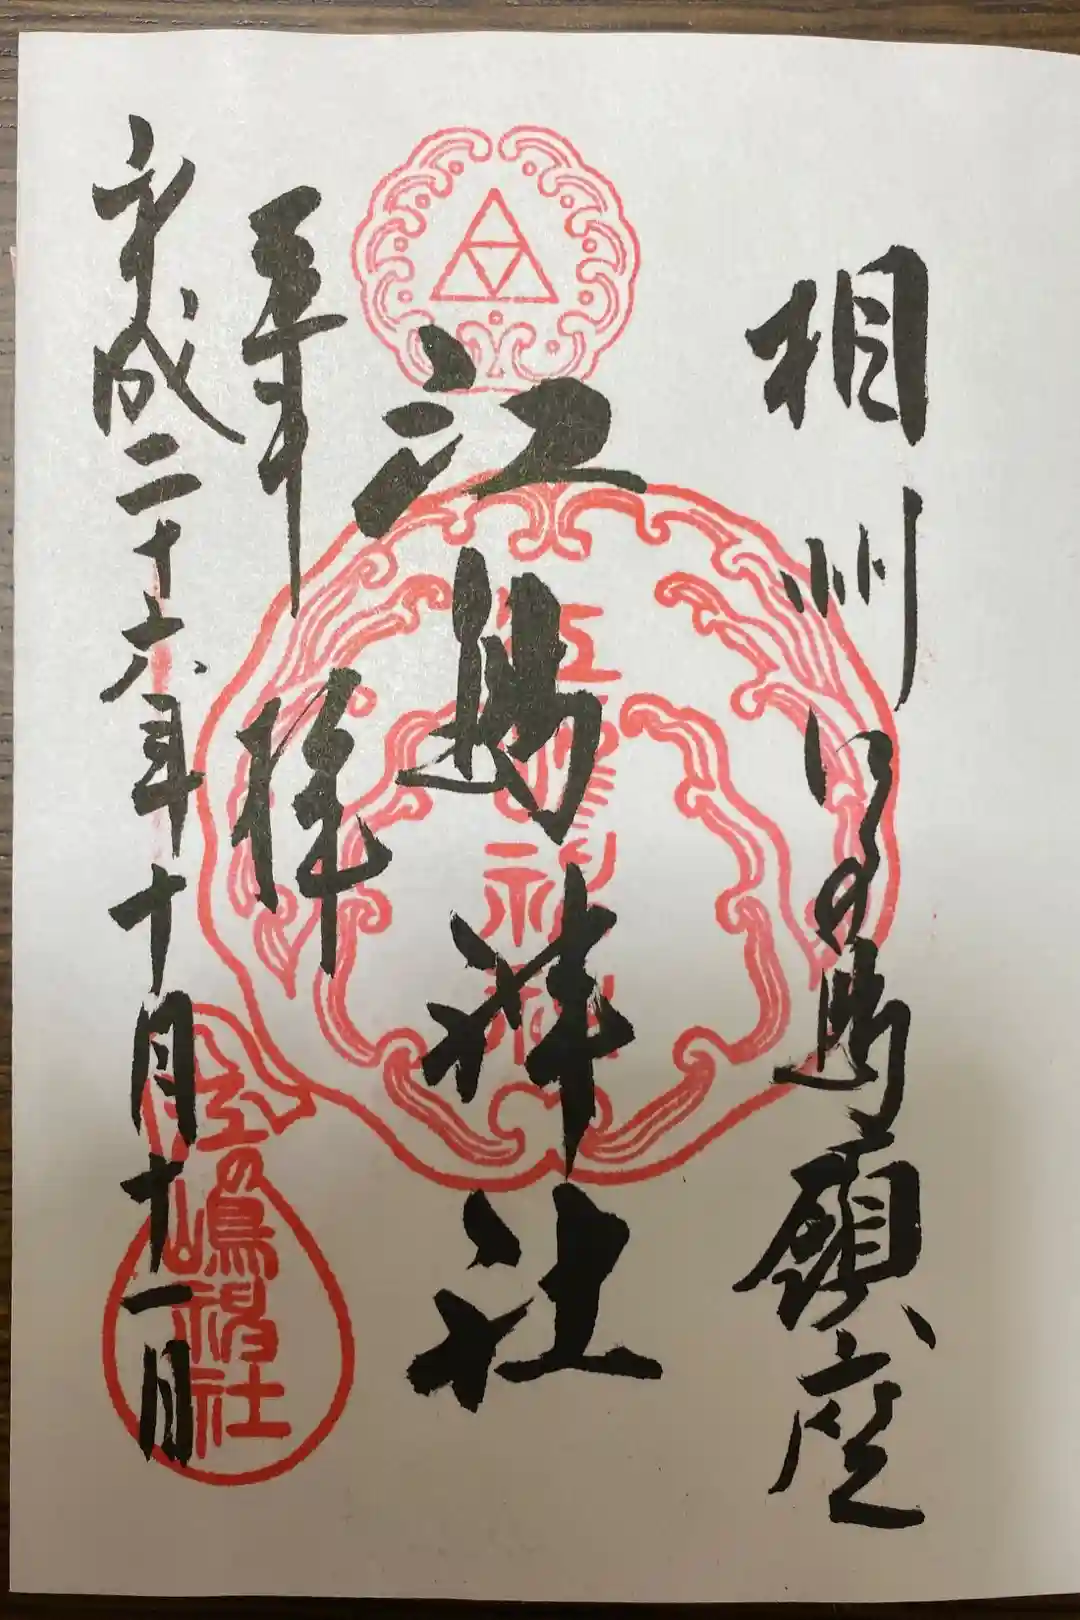 相州江の島鎮座
江島神社
奉拝
平成二十六年十月十一日
江島神社
江の嶋神社